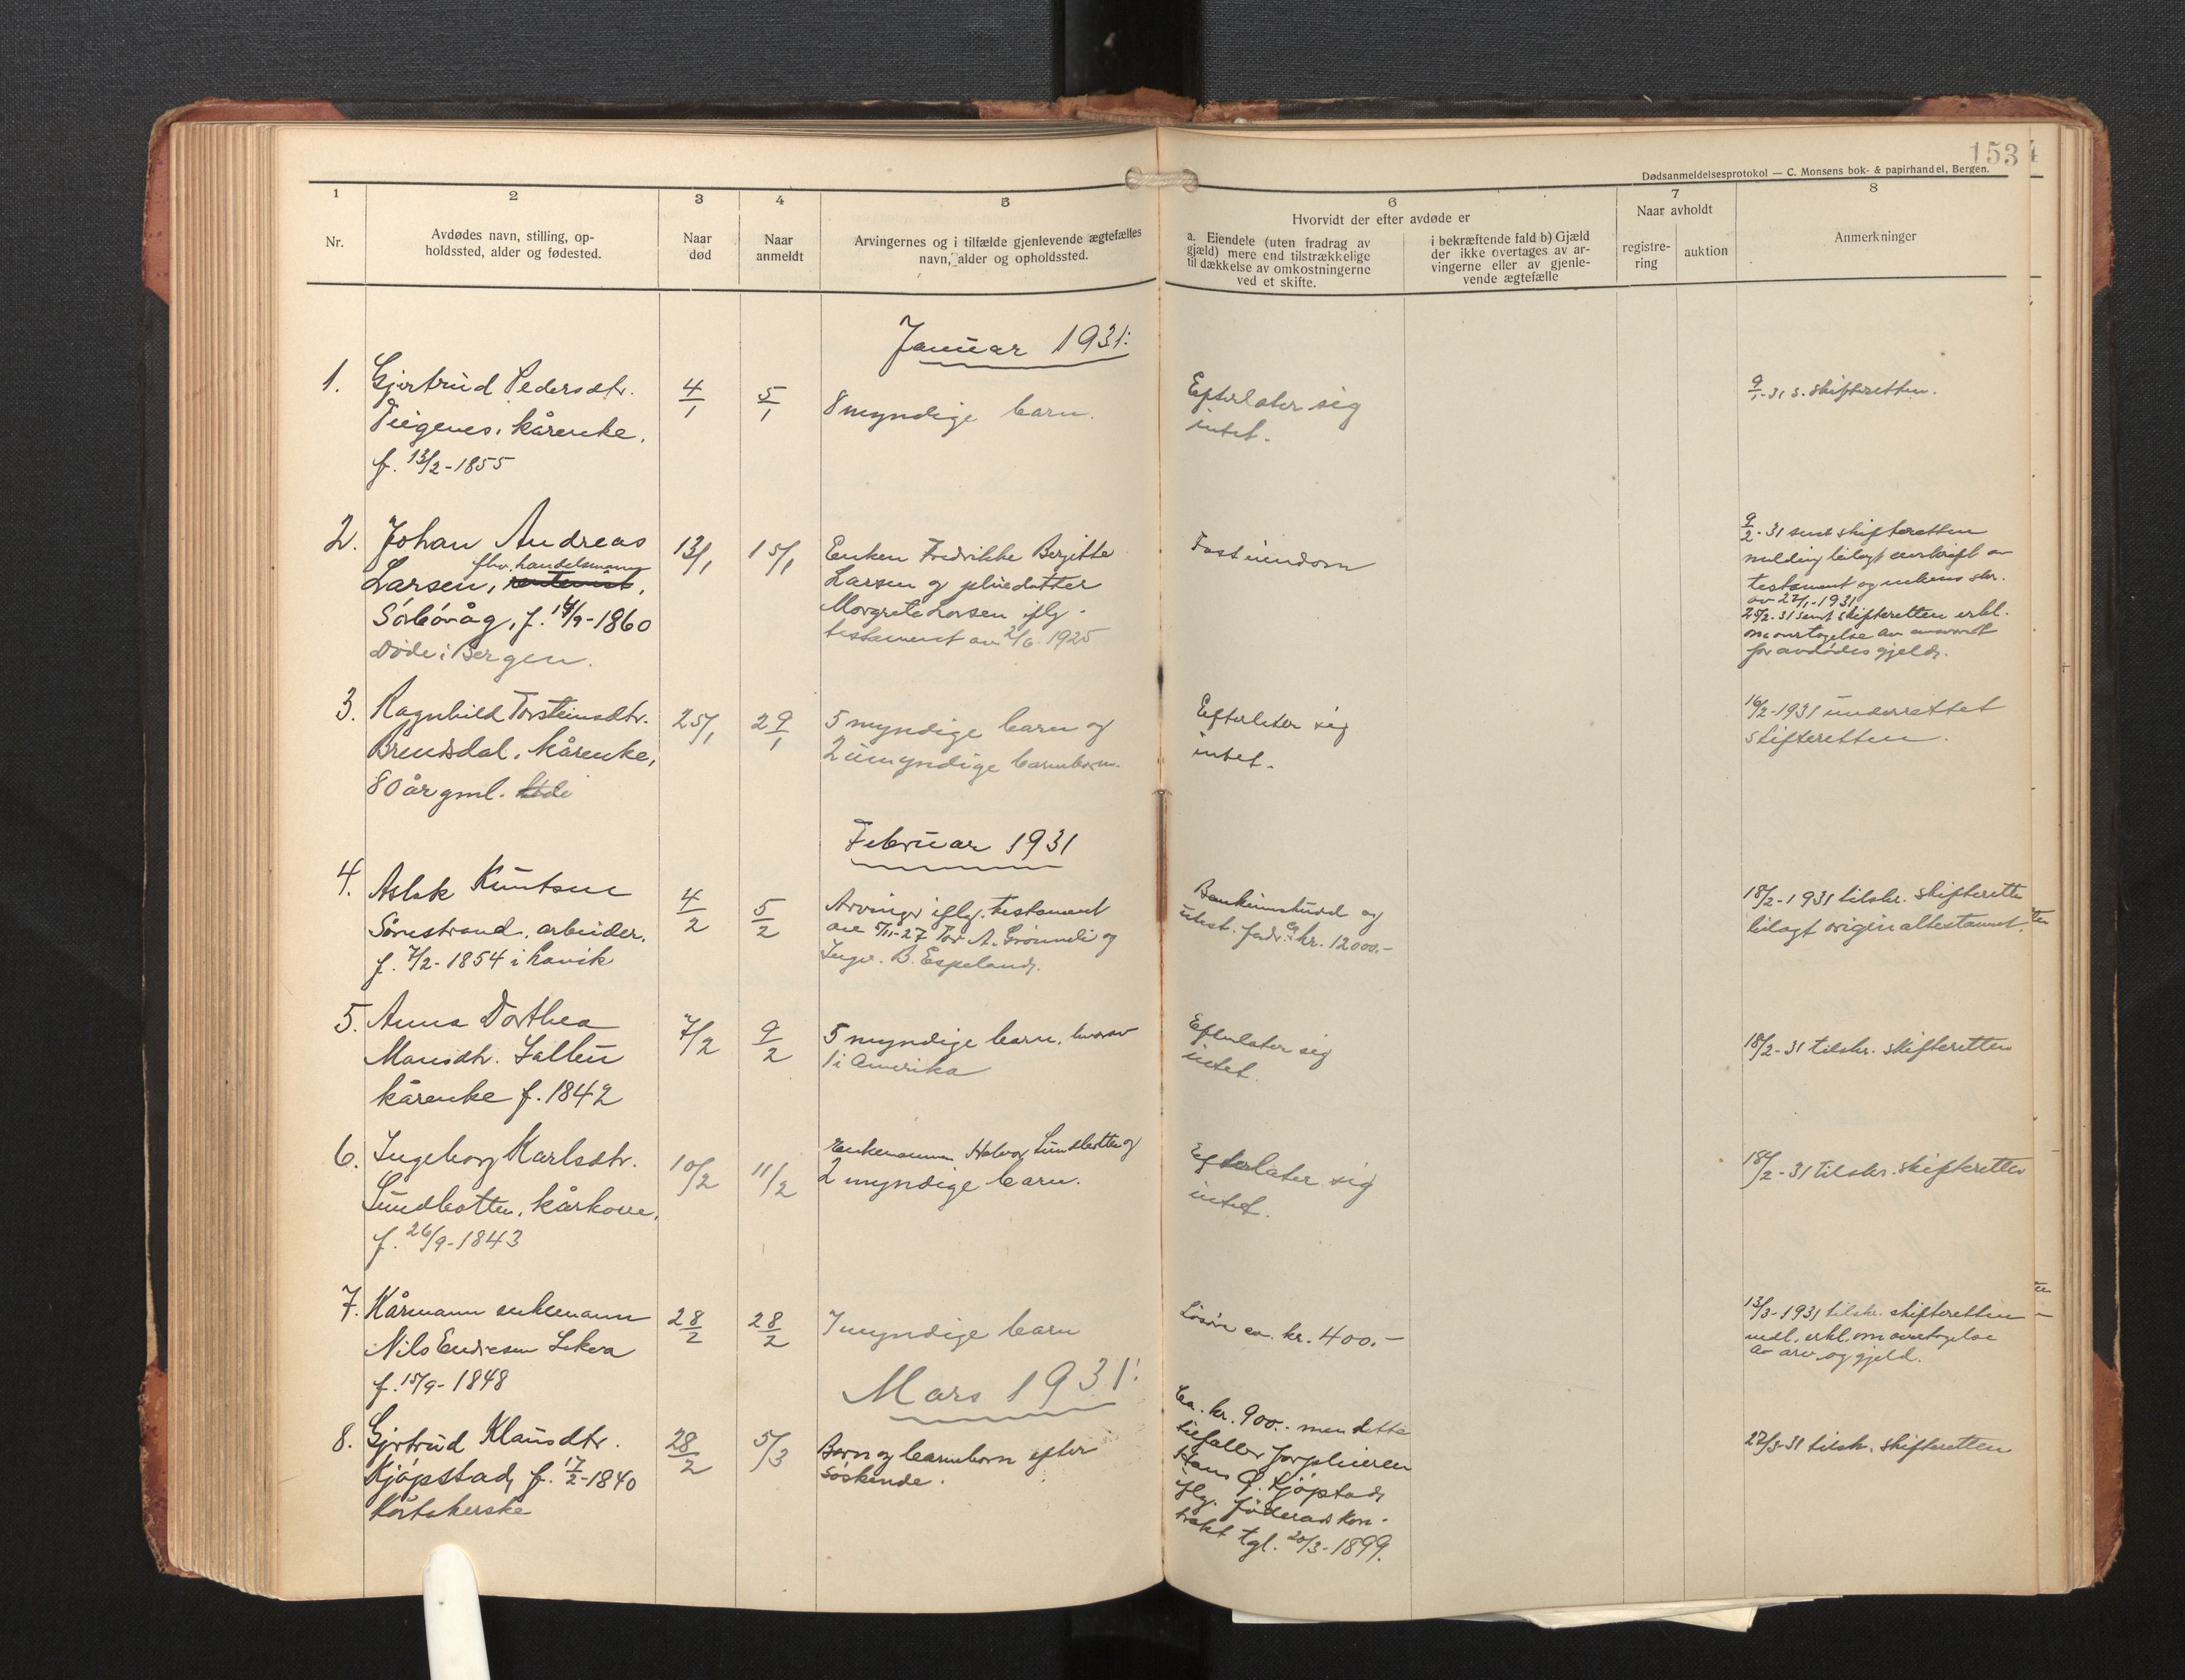 153
Dødsanmeldelsesprotokol — C. Monsens bok- & papirhandel, Bergen.
1 2 3 4 5 6 7 8
Nr.
Avdødes navn, stilling, op-
holdssted, alder og fødested.
Naar
død
Naar
anmeldt
Arvingernes og i tilfælde gjenlevende ægtefælles
navn, alder og opholdssted.
Hvorvidt der efter avdøde er
a. Eiendele (uten fradrag av
gjæld) mere end tilstrækkelige
til dækkelse av omkostningerne
ved et skifte.
i bekræftende fald b) Gjæld
der ikke overtages av ar-
vingerne eller av gjenle-
vende ægtefælle
Naar avholdt
registre-
ring
auktion
Anmerkninger
Januar 1931:
1. Gjertrud Pedersdtr.
Teigenes, kårenke,
f. 13/2-1855
4/1
5/1
8 myndige barn.
Efterlater sig
intet.
9/1-31 s. skifteretten.
2. Johan Andreas
fhv. handelsmann
Larsen, rentenist,
Sörbövåg, f. 14/9-1860
Döde i Bergen.
13/1
15/1
Enken Fredrikke Bergitte
Larsen og pliedatter
Margrete Larsen iflg.
testament av 2/6.1925
Fast eiendom
9/2-31 sendt skifteretten
melding bilagt avskrift av
testament og enkens skr.
av 27/1-1931
25/2-31 sendt skifteretten erkl.
om overtagelse av ansvaret
for avdødes gjeld.
3. Ragnhild Torsteinsdtr.
Brendsdal, kårenke,
80 år gml.
25/1
29/1
5 myndige barn og
2 umyndige barnebarn.
Efterlater sig
intet.
16/2-1931 underrettet
skifteretten.
Februar 1931
4. Aslak Knutsen
Sörestrand, arbeider,
f. 7/2-1854 i Lavik
4/2
5/2
Arvinger iflg. testament
av 5/11-27 Tor A. Grönneli og
Ingv. B. Espeland.
Bankinnskudd og
utest. fodr. ca kr. 12000.-
18/2-1931 tilskr. skifteretten
bilagt originaltestament.
5. Anna Dorthea
Mansdtr. Salbu
kårenke f. 1842
7/2
9/2
5 myndige barn, hvorav
1 i Amerika
Efterlater sig
intet.
18/2-31 tilskr. skifteretten
6. Ingeborg Karlsdtr.
Sundbotten, kårkone,
f. 26/9-1843
10/2
11/2
Enkemannen Halvor Sundbotten og
2 myndige barn.
Efterlater sig
intet.
18/2-31 tilskr. skifteretten
7. Kårmann enkemann
Nils Endresen Lekva
f. 15/9-1848
28/2
28/2
7 myndige barn
Lösöre ca. kr. 400.-
13/3-1931 tilskr. skifteretten
medl. erkl. om overtagelse
av arv og gjeld.
Mars 1931:
8. Gjertrud Klausdtr.
Kjöpstad, f. 17/2-1840
kårtakerske
28/2
5/3
Barn og barnebarn efter
söskende.
Ca. kr. 900.- men dette
tilfaller forpleieren
Hans P. Kjöpstad
iflg. föderådskon-
trakt tgl. 20/3-1899.
27/3-31 tilskr. skifteretten